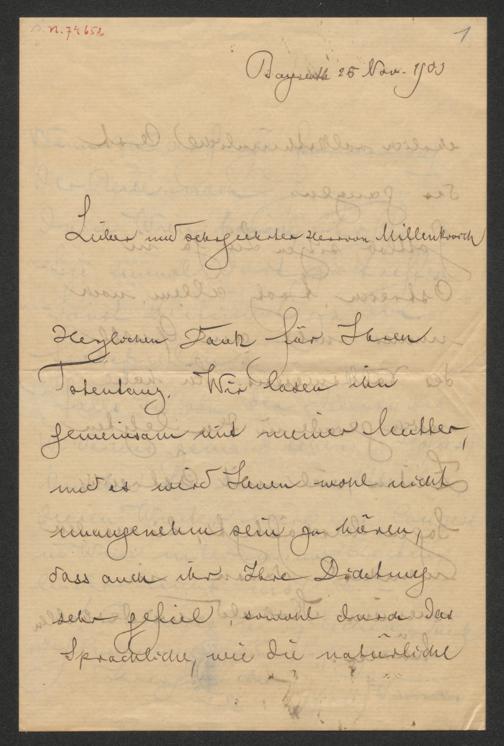 N. 74652
1
Bayreuth 25 Nov. 1903
Lieber und sehr geehrter Herr von Millenkovich
Herzlichen Dank für Ihren
Totentanz. Wir lasen ihn
gemeinsam mit meiner Mutter,
und es wird Ihnen wohl nicht
unangenehm sein zu hören,
dass auch ihr Ihre Dichtung
sehr gefiel, sowohl durch das
Sprachliche, wie die natürliche